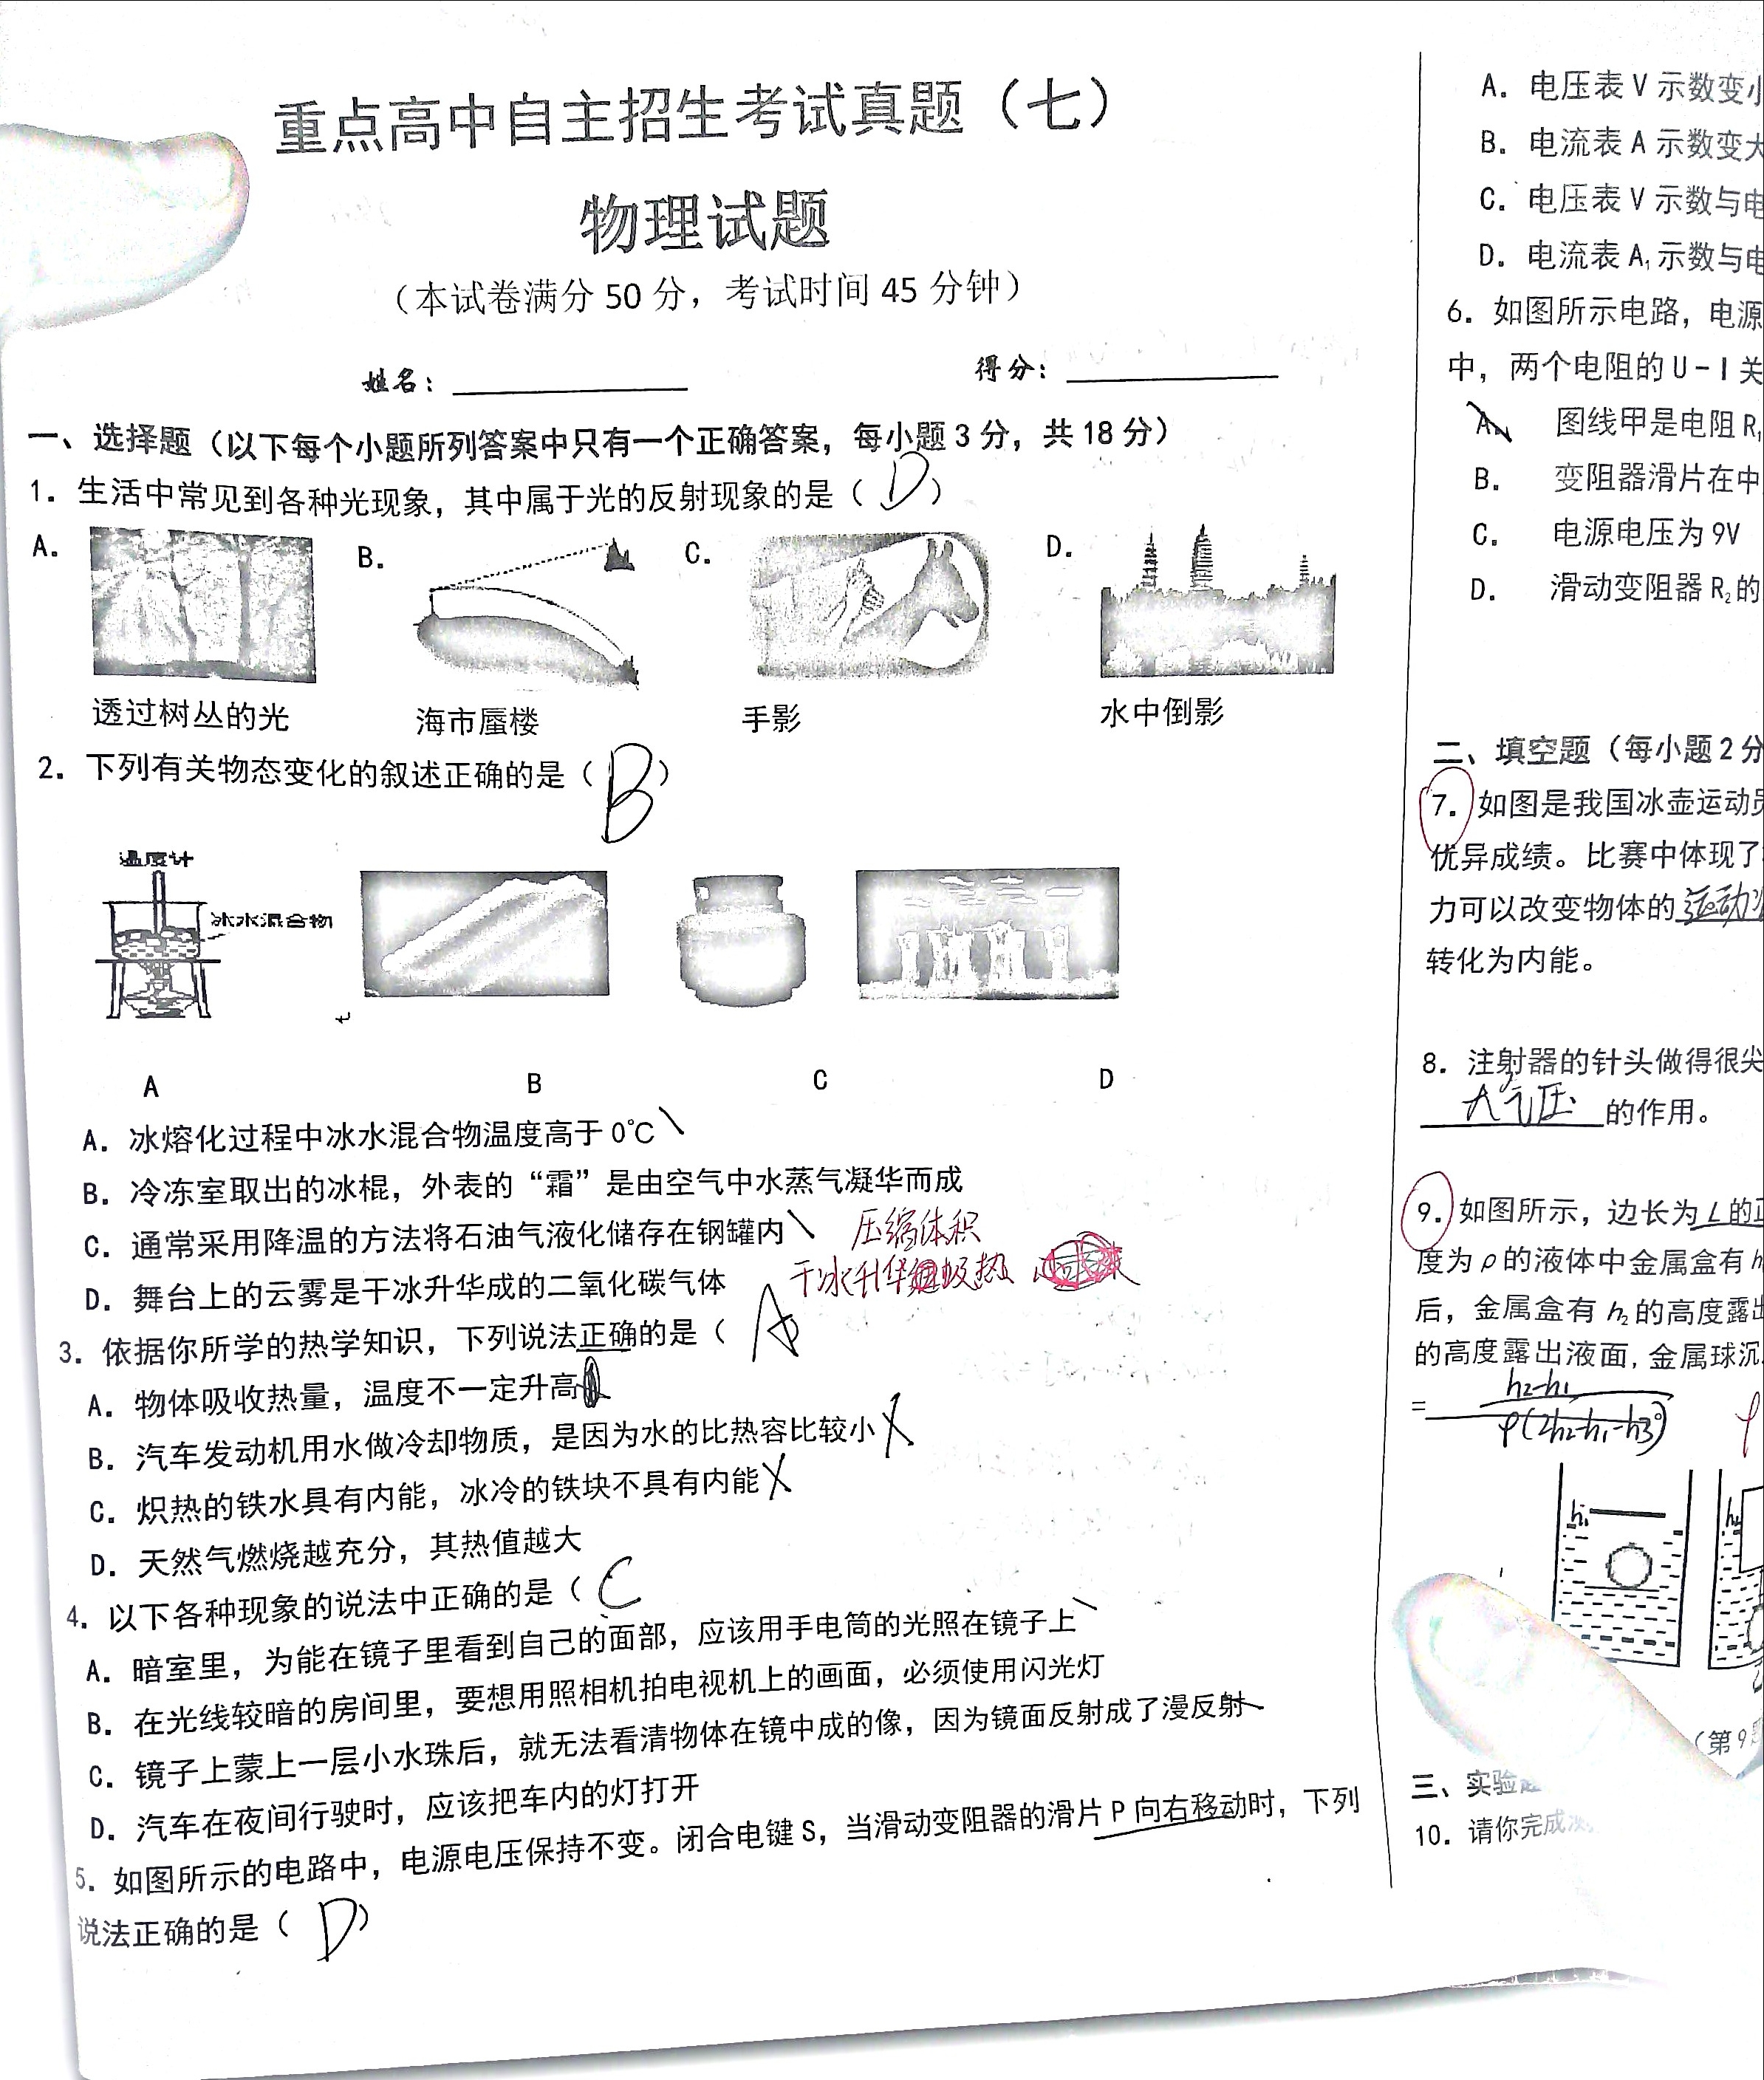 重点高中自主招生考试真题（七）
物理试题
（本试卷满分 50 分，考试时间 45 分钟）
姓名：
得分：
一、选择题（以下每个小题所列答案中只有一个正确答案，每小题 3 分，共 18 分）
1．生活中常见到各种光现象，其中属于光的反射现象的是（ D ）
A．
B．
C．
D．
透过树丛的光
海市蜃楼
手影
水中倒影
2．下列有关物态变化的叙述正确的是（ B ）
温度计
冰水混合物
A
B
C
D
A．冰熔化过程中冰水混合物温度高于 0℃
B．冷冻室取出的冰棍，外表的“霜”是由空气中水蒸气凝华而成
C．通常采用降温的方法将石油气液化储存在钢罐内 压缩体积
D．舞台上的云雾是干冰升华成的二氧化碳气体 干冰升华吸热
3．依据你所学的热学知识，下列说法正确的是（ A
A．物体吸收热量，温度不一定升高
B．汽车发动机用水做冷却物质，是因为水的比热容比较小
C．炽热的铁水具有内能，冰冷的铁块不具有内能
D．天然气燃烧越充分，其热值越大
4．以下各种现象的说法中正确的是（ C
A．暗室里，为能在镜子里看到自己的面部，应该用手电筒的光照在镜子上
B．在光线较暗的房间里，要想用照相机拍电视机上的画面，必须使用闪光灯
C．镜子上蒙上一层小水珠后，就无法看清物体在镜中成的像，因为镜面反射成了漫反射
D．汽车在夜间行驶时，应该把车内的灯打开
5．如图所示的电路中，电源电压保持不变。闭合电键 S，当滑动变阻器的滑片 P 向右移动时，下列
说法正确的是（ D ）
A．电压表 V 示数变小
B．电流表 A 示数变大
C．电压表 V 示数与电
D．电流表 A₁ 示数与电
6．如图所示电路，电源
中，两个电阻的 U－I 关
A． 图线甲是电阻 R₁
B． 变阻器滑片在中
C． 电源电压为 9V
D． 滑动变阻器 R₂ 的
二、填空题（每小题 2 分
7．如图是我国冰壶运动员
优异成绩。比赛中体现了
力可以改变物体的 运动
转化为内能。
8．注射器的针头做得很尖
大气压 的作用。
9．如图所示，边长为 L 的正
度为 ρ 的液体中金属盒有 h
后，金属盒有 h₂ 的高度露出
的高度露出液面，金属球沉
h2-h1
= ρ(2h2-h1-h3)
h₁
h₂
（第 9 题
三、实验题
10．请你完成